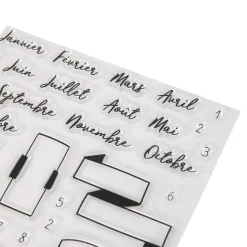 Janvier Février Mars Avril
Juin Juillet Août Mai 2
Septembre Novembre Octobre 3
1
5
6
8
2